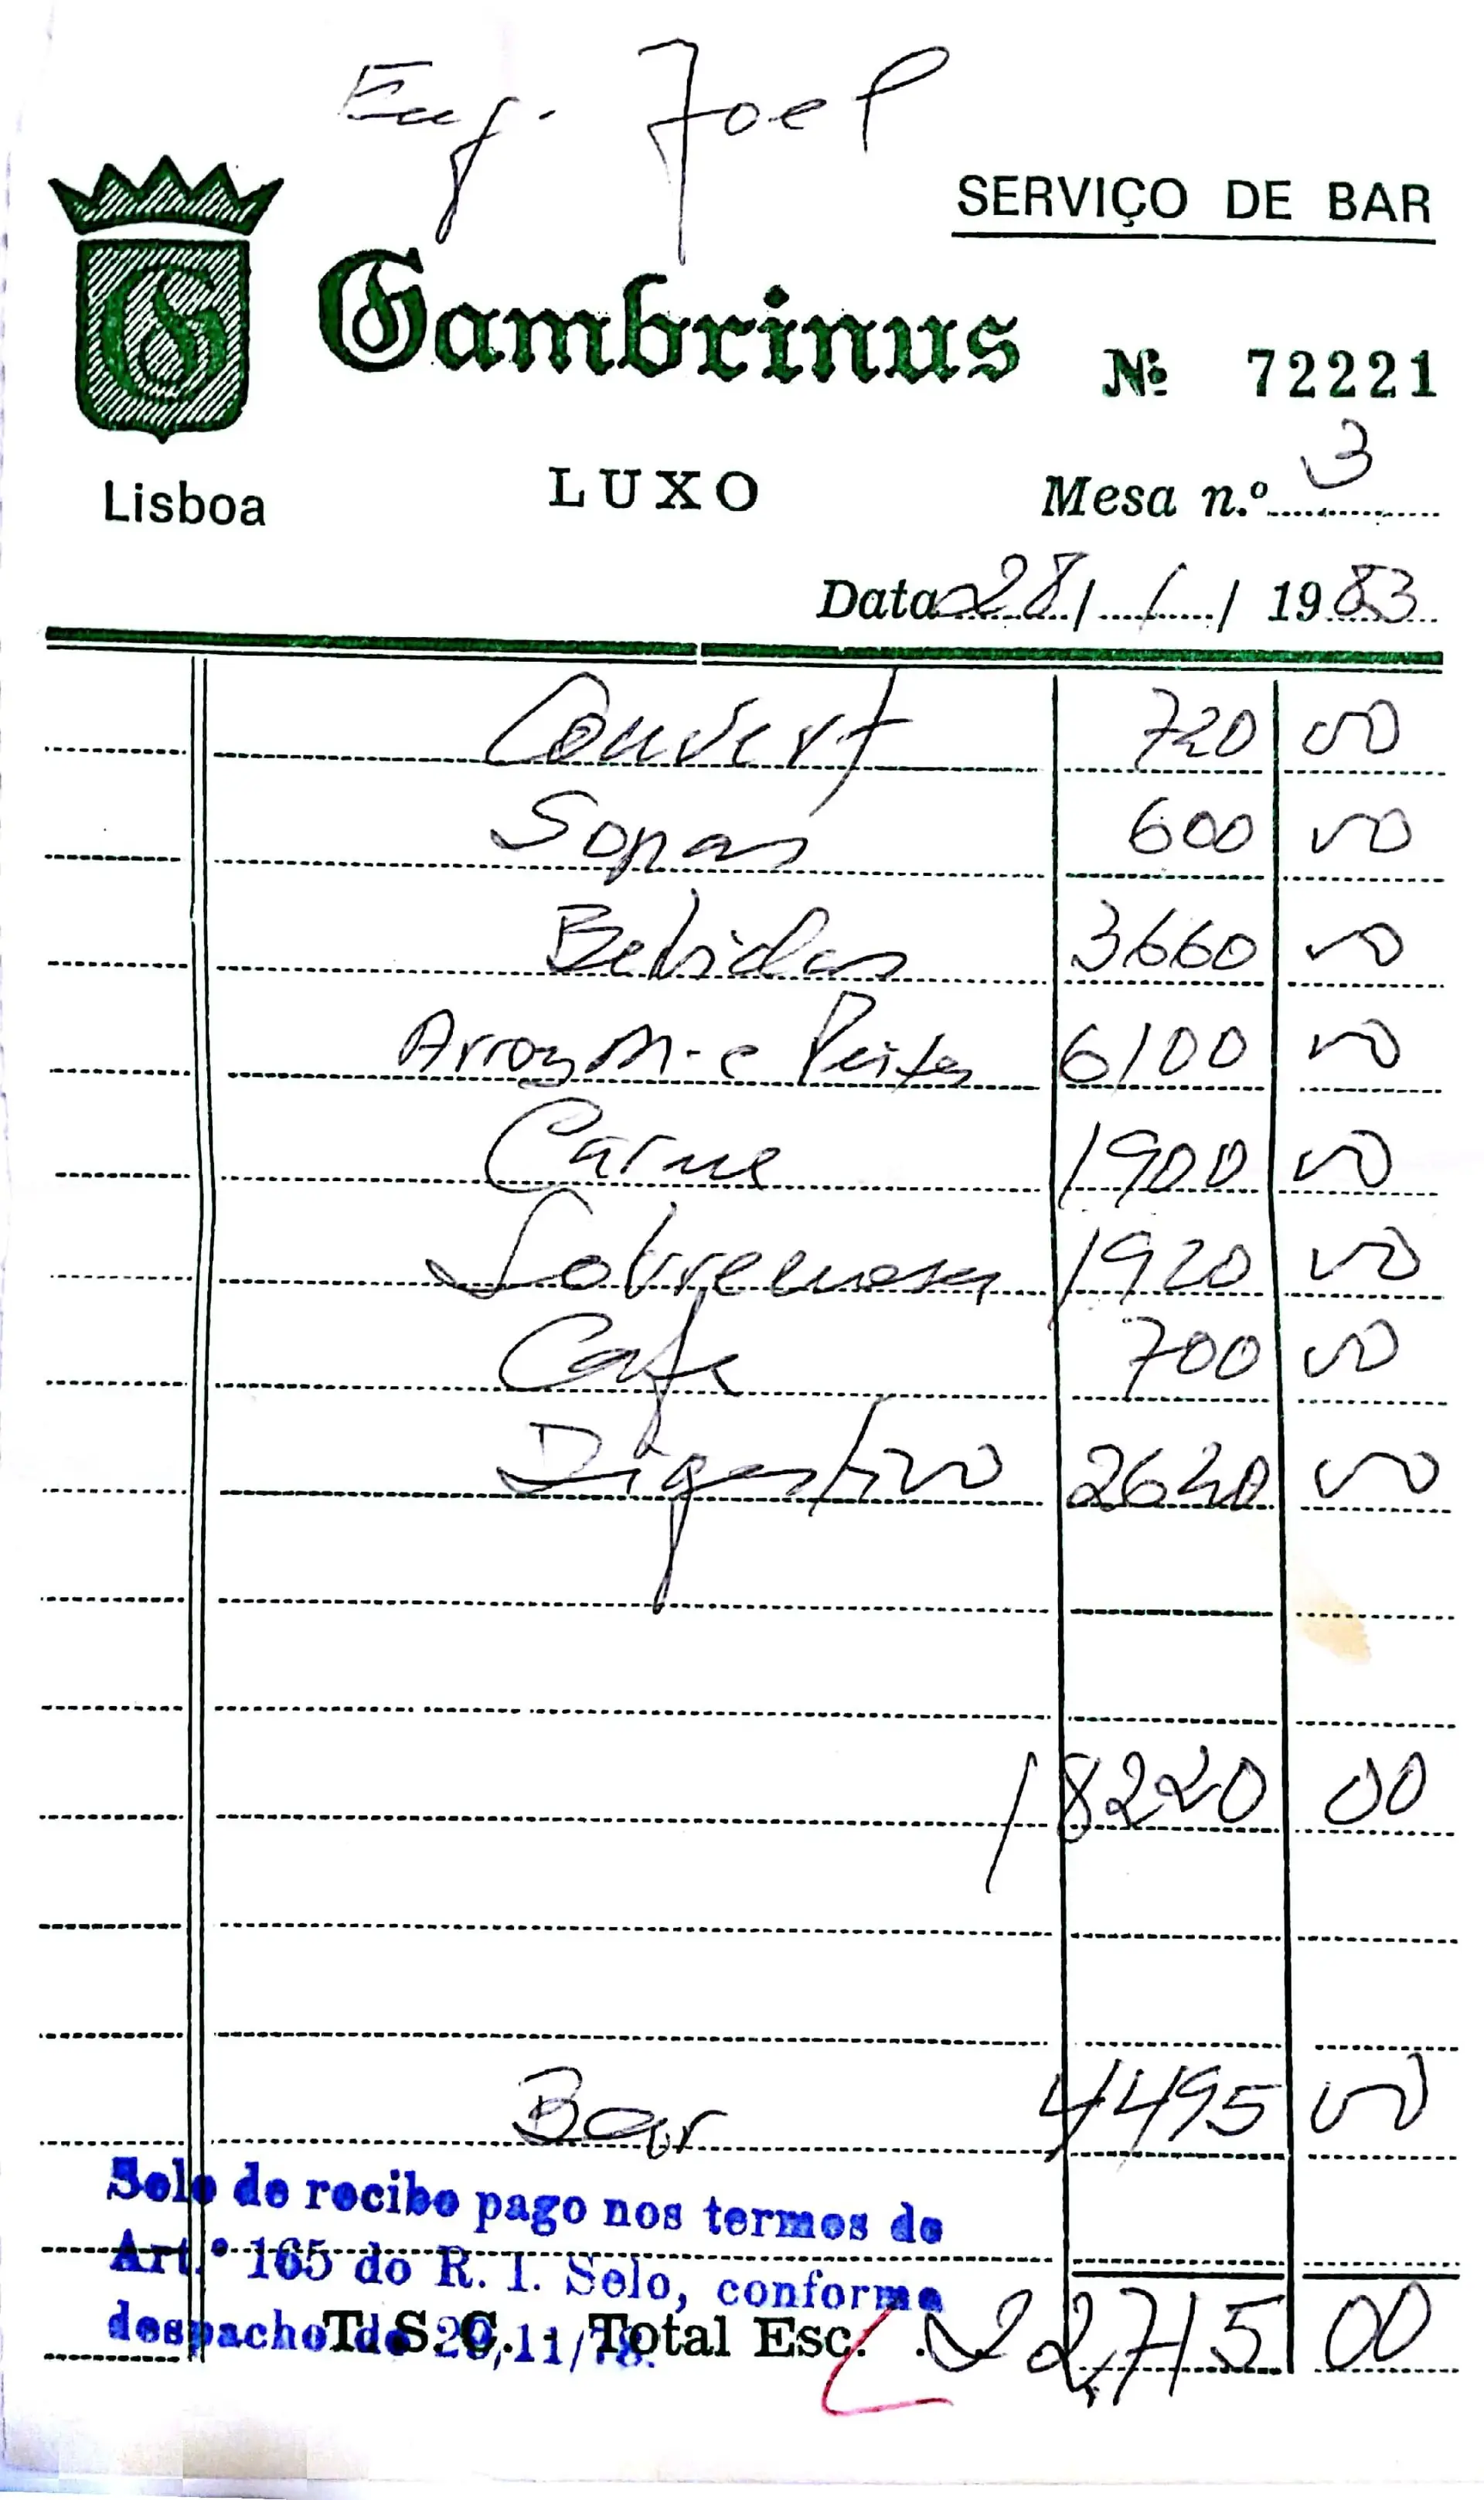 Eng. Joel
SERVIÇO DE BAR
Gambrinus
Nº 72221
Lisboa
LUXO
Mesa n.º 3
Data 28 / 1 / 1983
Couvert 720 00
Sopas 600 00
Bebidas 3660 00
Arroz M. e Peixes 6100 00
Carne 1900 00
Sobremesa 1920 00
Cafe 700 00
Digestivo 2620 00
18220 00
Bar 4495 00
Selo de recibo pago nos termos do
Art.º 165 do R. I. Selo, conforme
despacho de 29/11/78.
T. S. C. - Total Esc. 22,715 00